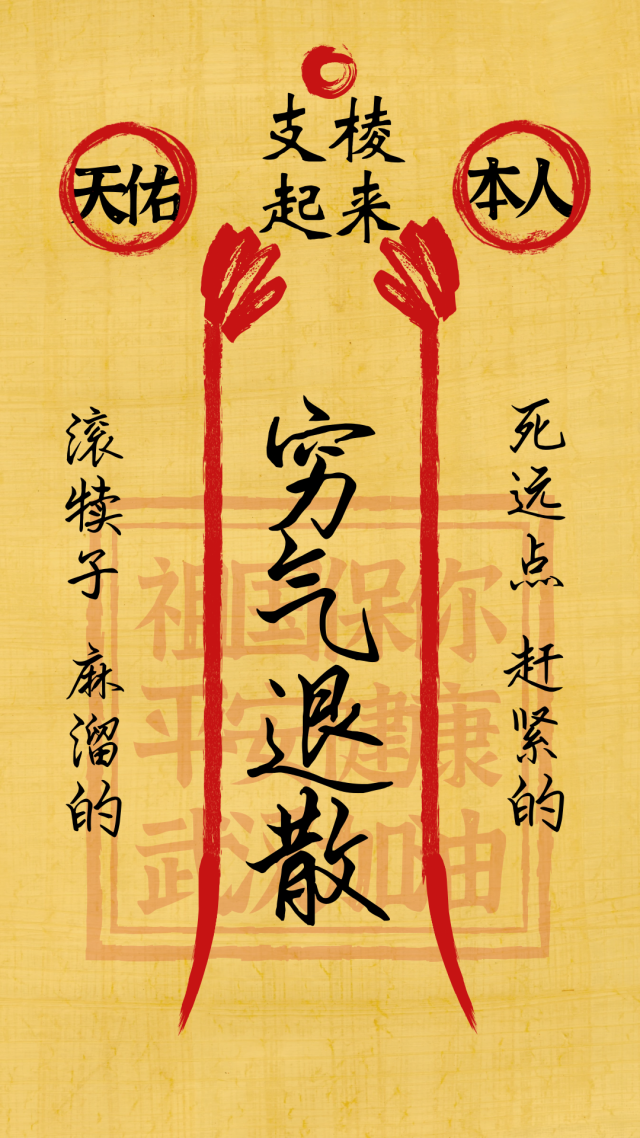 支棱
起来
天佑
本人
穷气退散
死远点 赶紧的
滚犊子 麻溜的
祖国保你
平安健康
武汉加油